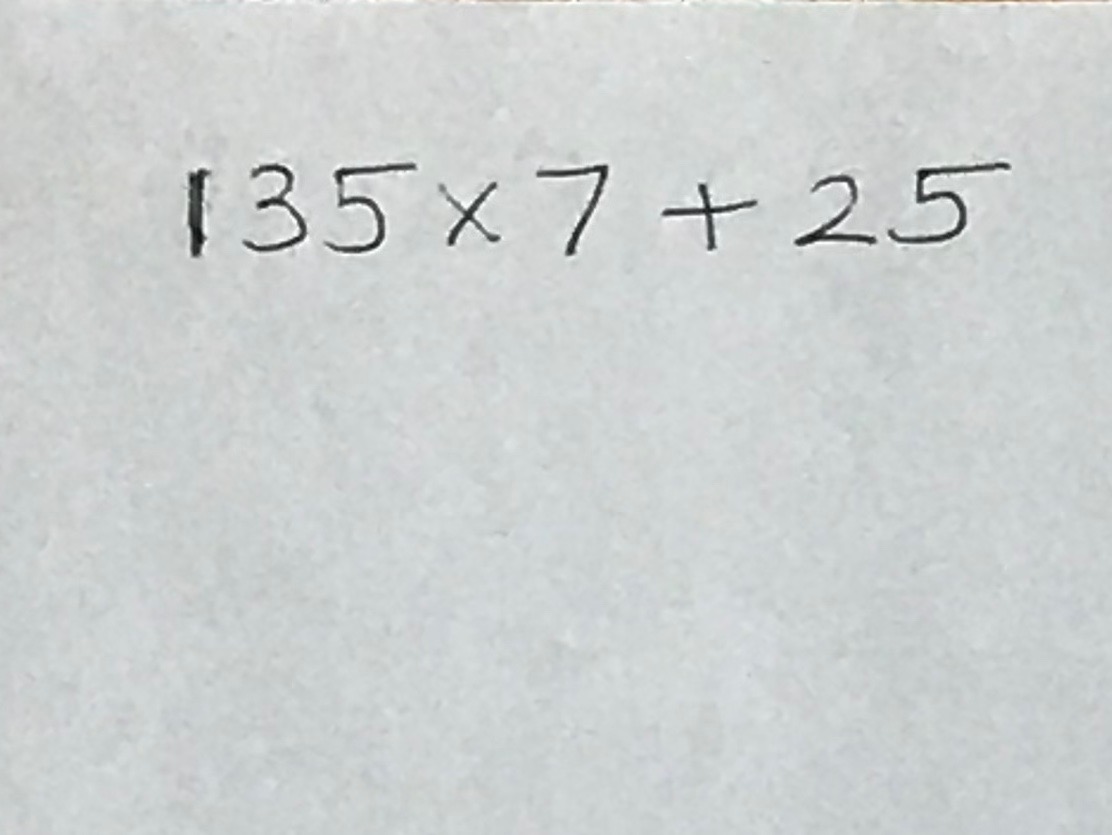 135 × 7 + 25